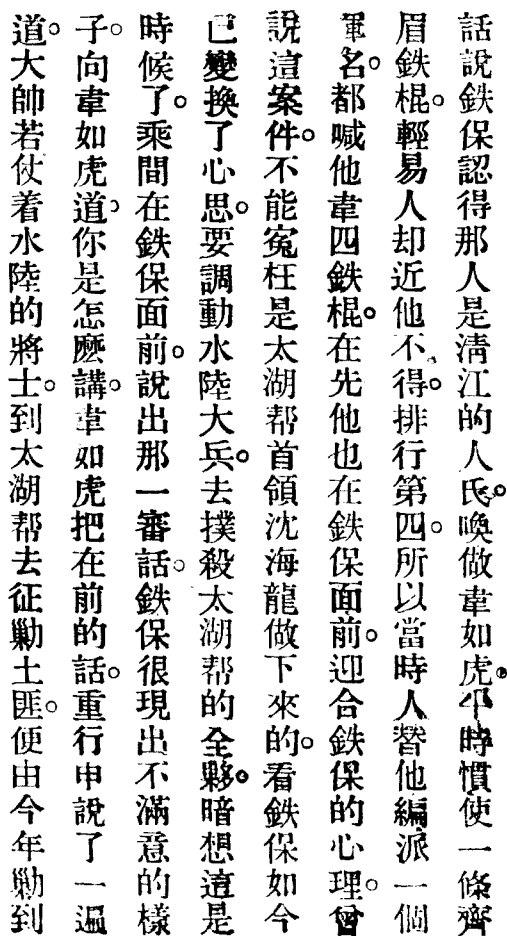 話說鉄保認得那人是清江的人氏。喚做韋如虎。平時慣使一條齊
眉鉄棍。輕易人却近他不得。排行第四。所以當時人替他編派一個
軍名。都喊他韋四鉄棍。在先他也在鉄保面前。迎合鉄保的心理。曾
說這案件。不能寃枉是太湖帮首領沈海龍做下來的。看鉄保如今
已變換了心思。要調動水陸大兵。去撲殺太湖帮的全夥。暗想這是
時候了。乘間在鉄保面前。說出那一審話。鉄保很現出不滿意的樣
子。向韋如虎道。你是怎麽講。韋如虎把在前的話。重行申說了一遍
道。大帥若仗着水陸的將士。到太湖帮去征勦土匪。便由今年勦到